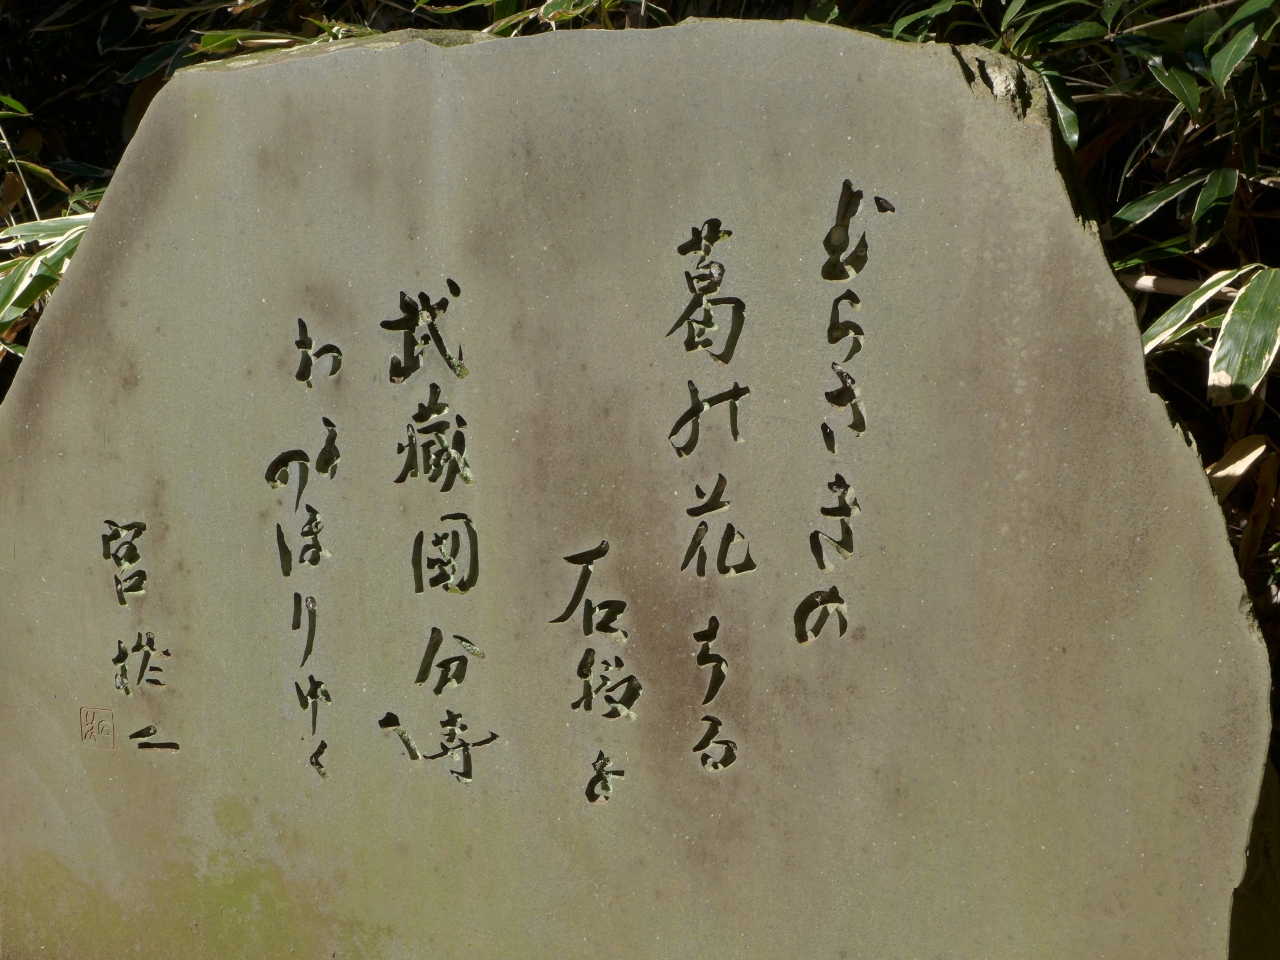 むらさきの
葛の花ちる
石段を
武蔵國分寺へ
わがのぼりゆく
宮柊二